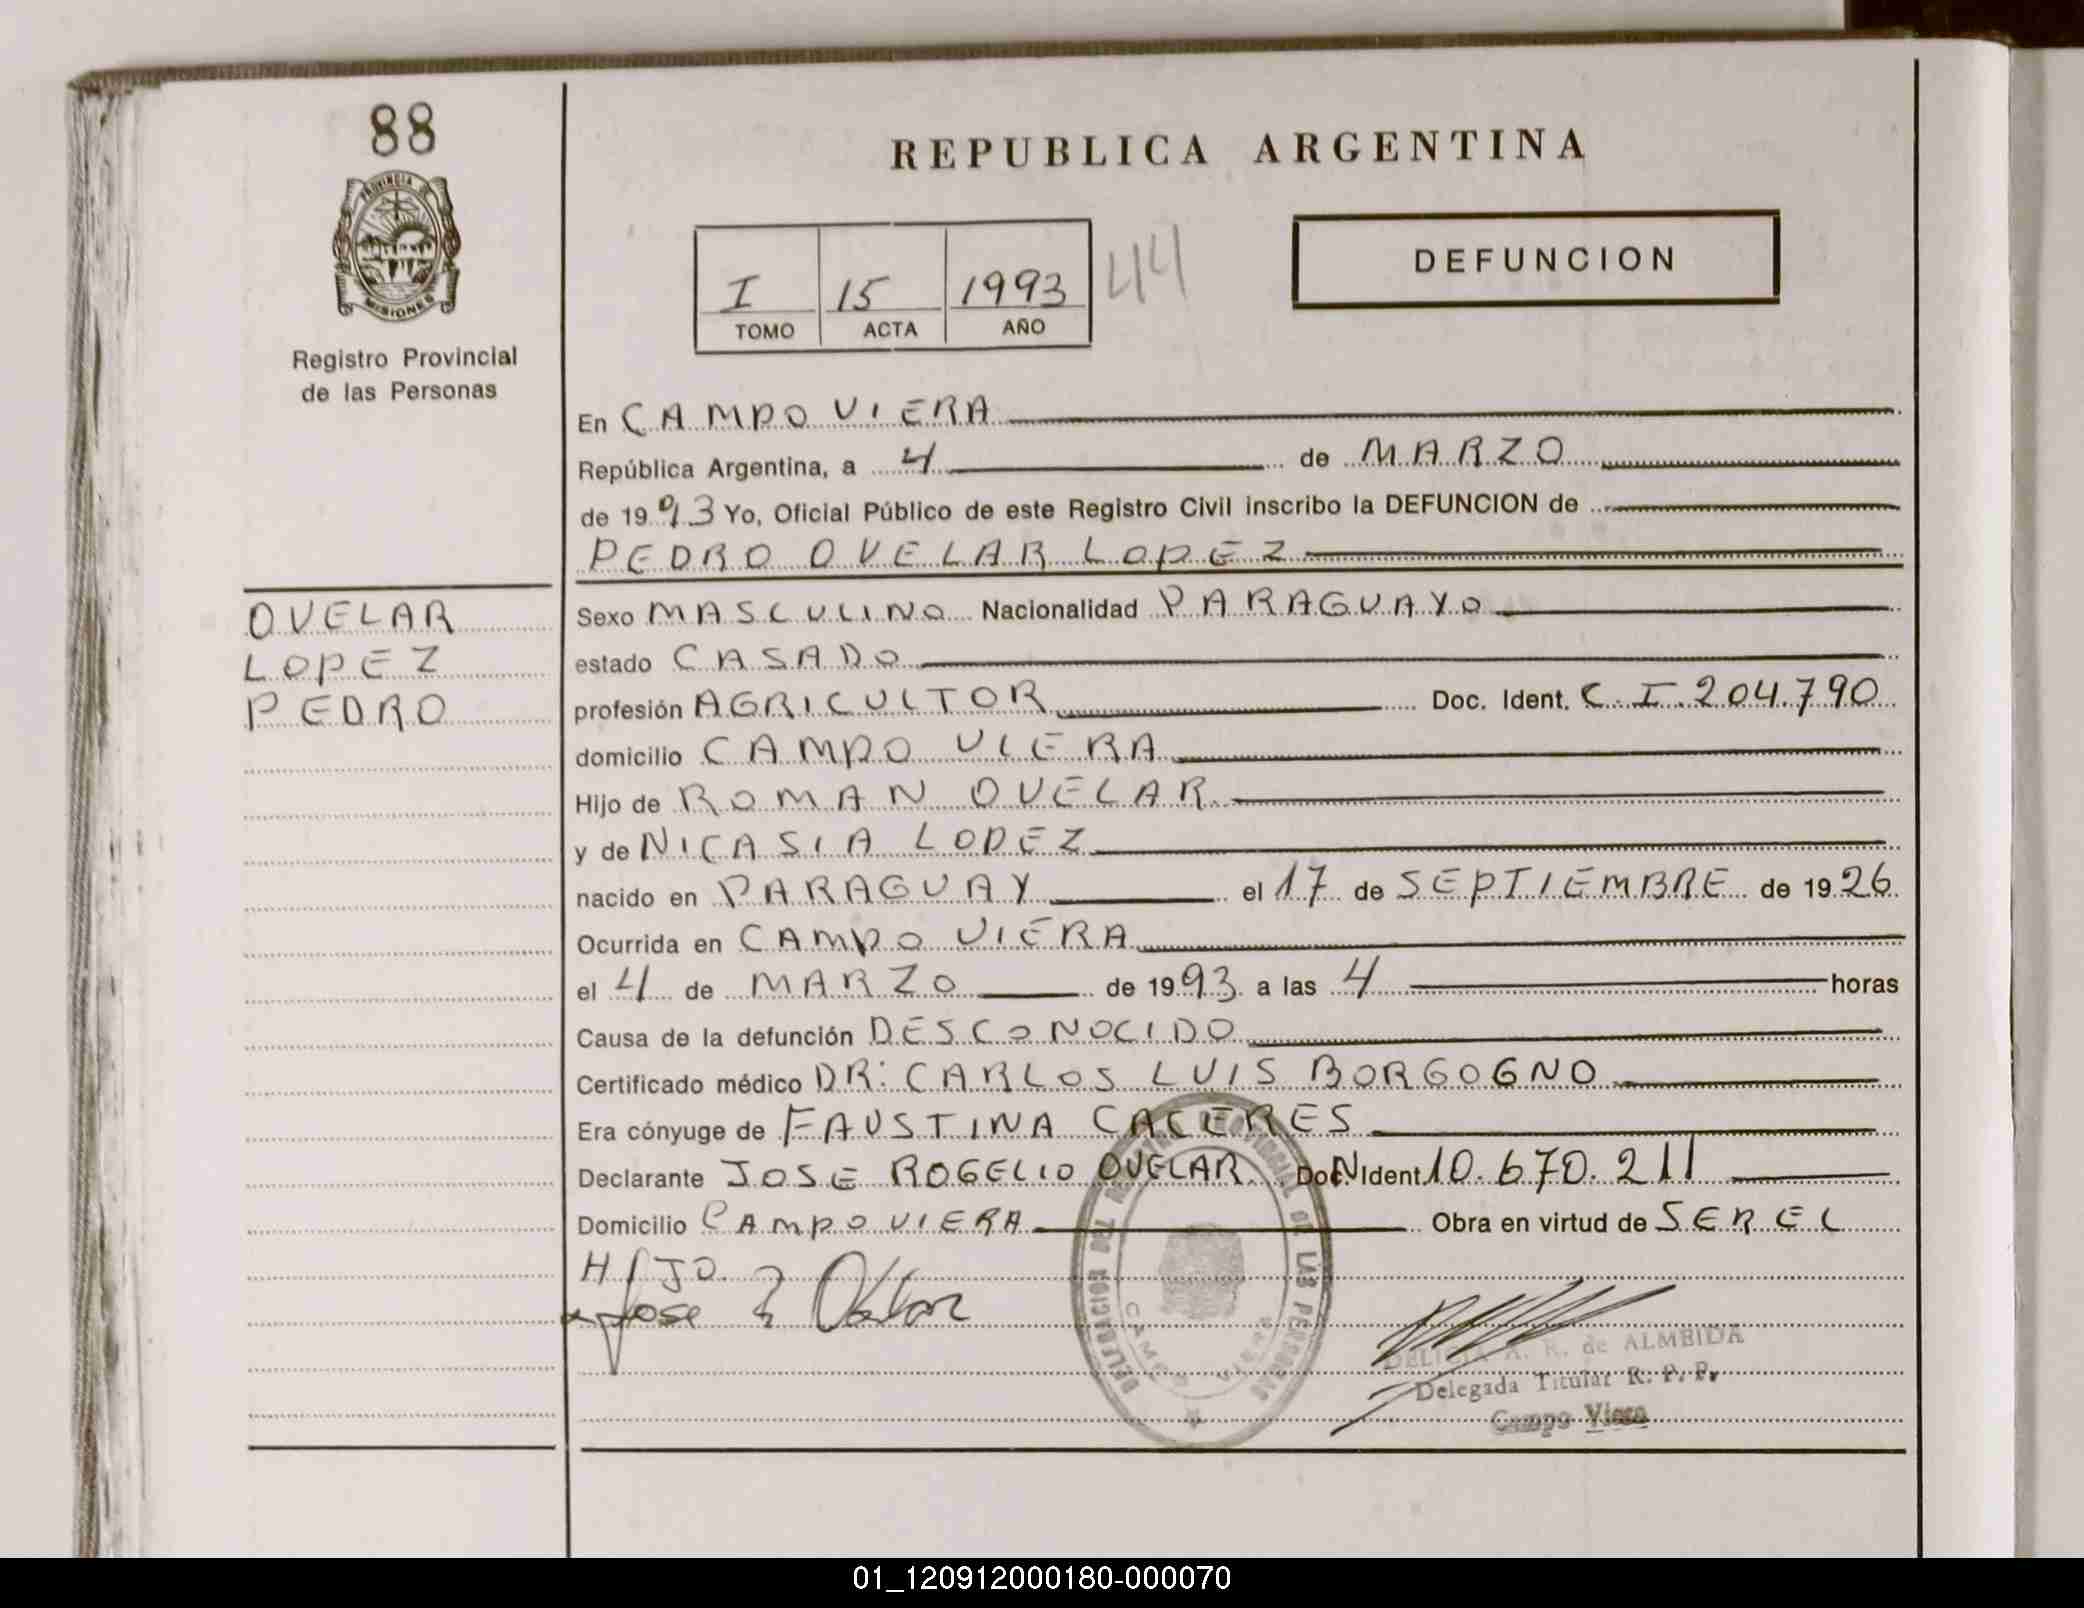 88
PROVINCIA DE
MISIONES
Registro Provincial
de las Personas
REPUBLICA ARGENTINA
I 15 1993 44
TOMO ACTA AÑO
DEFUNCION
En CAMPO VIERA
República Argentina, a 4 de MARZO
de 1993 Yo, Oficial Público de este Registro Civil inscribo la DEFUNCION de
PEDRO OVELAR LOPEZ
OVELAR
LOPEZ
PEDRO
Sexo MASCULINO Nacionalidad PARAGUAYO
estado CASADO
profesión AGRICULTOR Doc. Ident. C.I.204.790
domicilio CAMPO VIERA
Hijo de ROMAN OVELAR
y de NICASIA LOPEZ
nacido en PARAGUAY el 17 de SEPTIEMBRE de 1926
Ocurrida en CAMPO VIERA
el 4 de MARZO de 1993 a las 4 horas
Causa de la defunción DESCONOCIDO
Certificado médico DR: CARLOS LUIS BORGOGNO
Era cónyuge de FAUSTINA CACERES
Declarante JOSE ROGELIO OVELAR Doc. N Ident 10.670.211
Domicilio CAMPO VIERA Obra en virtud de SER EL
HIJO
Jose
DELEGACION DEL REGISTRO PROVINCIAL DE LAS PERSONAS
CAMPO VIERA
DELICIA A. R. de ALMEIDA
Delegada Titular R. P. P.
Campo Viera
01_120912000180-000070